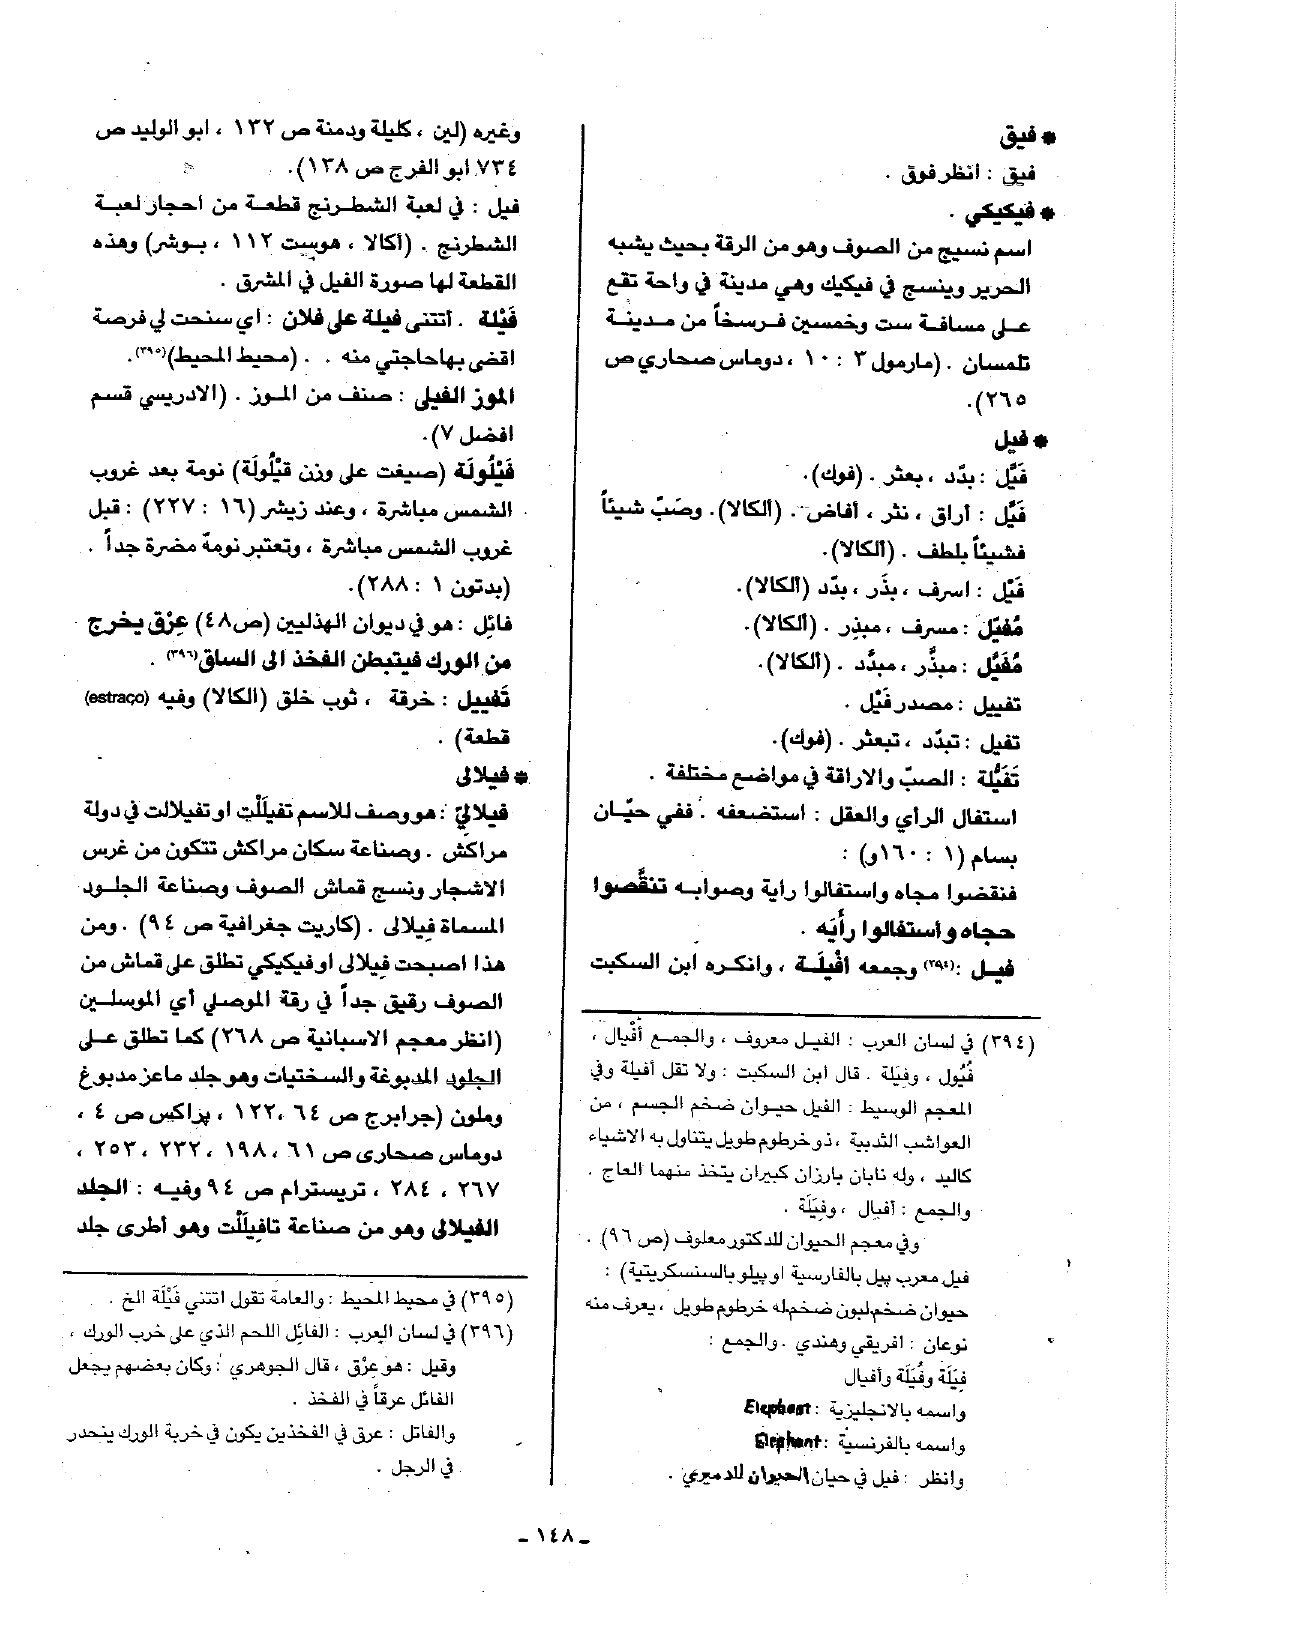 * فيق
فيق : انظر فوق .
* فيكيكي .
اسم نسيج من الصوف وهو من الرقة بحيث يشبه
الحرير وينسج في فيكيك وهي مدينة في واحة تقع
على مسافة ست وخمسين فرسخاً من مدينة
تلمسان . (مارمول ٣ : ١٠ ، دوماس صحاري ص
٢٦٥).
* فيل
فَيَّل : بدّد ، بعثر . (فوك).
فَيَّل : أراق ، نثر ، أفاض . (ألكالا). وصَبّ شيئاً
فشيئاً بلطف . (ألكالا).
فَيَّل : اسرف ، بذّر ، بدّد (ألكالا).
مُفَيِّل : مسرف ، مبذِر . (ألكالا).
مُفَيَّل : مبذَّر ، مبدَّد . (ألكالا).
تفييل : مصدر فَيَّل .
تفيل : تبدّد ، تبعثر . (فوك).
تَفَيُّلة : الصبّ والاراقة في مواضع مختلفة .
استفال الرأي والعقل : استضعفه . ففي حيّان
بسام (١ : ١٦٠و) :
فنقضوا مجاه واستفالوا راية وصوابه تنقَّصوا
حجاه واستفالوا رأيَه .
فيل :(٣٩٤) وجمعه أفْيِلَة ، وانكره ابن السكيت
(٣٩٤) في لسان العرب : الفيل معروف ، والجمع أفْيال ،
فُيُول ، وفِيَلة . قال ابن السكيت : ولا تقل أفيلة وفي
المعجم الوسيط : الفيل حيوان ضخم الجسم ، من
العواشب الثدبية ، ذو خرطوم طويل يتناول به الاشياء
كاليد ، وله نابان بارزان كبيران يتخذ منهما العاج .
والجمع : أفيال ، وفِيَلَة .
وفي معجم الحيوان للدكتور معلوف (ص ٩٦) .
فيل معرب پيل بالفارسية او پيلو بالسنسكريتية) :
حيوان ضخم لبون ضخم له خرطوم طويل ، يعرف منه
نوعان : افريقي وهندي . والجمع :
فِيَلَة وفُيَلَة وأفيال
واسمه بالانجليزية : Elephant
واسمه بالفرنسية : Elephant
وانظر : فيل في حيان الحيوان للدميري .
وغيره (لين ، كليلة ودمنة ص ١٣٢ ، ابو الوليد ص
٧٣٤ ابو الفرج ص ١٣٨).
فيل : في لعبة الشطرنج قطعة من أحجار لعبة
الشطرنج . (ألكالا ، هوست ١١٢ ، بوشر) وهذه
القطعة لها صورة الفيل في المشرق .
فَيْلة . أتتني فيلة على فلان : أي سنحت لي فرصة
اقضى بهاحاجتي منه . . (محيط المحيط)(٣٩٥).
الموز الفيلى : صنف من الموز . (الادريسي قسم
افضل ٧).
فَيْلُولَة (صيغت على وزن قيْلُولَة) نومة بعد غروب
الشمس مباشرة ، وعند زيشر (١٦ : ٢٢٧) : قبل
غروب الشمس مباشرة ، وتعتبر نومة مضرة جداً .
(بدتون ١ : ٢٨٨).
فائل : هو في ديوان الهذليين (ص٤٨) عِرْق يخرج
من الورك فيتبطن الفخذ الى الساق(٣٩٦) .
تَفييل : خرقة ، ثوب خلق (الكالا) وفيه (estraço)
قطعة) .
* فيلالى
فيلاليّ : هو وصف للاسم تفيلَلْت او تفيلالت في دولة
مراكش . وصناعة سكان مراكش تتكون من غرس
الاشجار ونسج قماش الصوف وصناعة الجلود
المسماة فيلالى . (كاريت جغرافية ص ٩٤) . ومن
هذا اصبحت فيلالى او فيكيكي تطلق على قماش من
الصوف رقيق جداً في رقة الموصلي أي الموسلين
(انظر معجم الاسبانية ص ٢٦٨) كما تطلق على
الجلود المدبوغة والسختيات وهو جلد ماعز مدبوغ
وملون (جرابرج ص ٦٤ ،١٢٢ ، پراكس ص ٤ ،
دوماس صحارى ص ٦١ ،١٩٨ ، ٢٣٢ ،٢٥٣ ،
٢٦٧ ، ٢٨٤ ، تريسترام ص ٩٤ وفيه : الجلد
الفيلالى وهو من صناعة تافيلَلْت وهو أطرى جلد
(٣٩٥) في محيط المحيط : والعامة تقول اتتني فَيْلَة الخ .
(٣٩٦) في لسان العرب : الفائل اللحم الذي على خرب الورك ،
وقيل : هو عِرْق ، قال الجوهري : وكان بعضهم يجعل
الفائل عرقاً في الفخذ .
والفائل : عرق في الفخذين يكون في خربة الورك ينحدر
في الرجل .
ـ ١٤٨ ـ